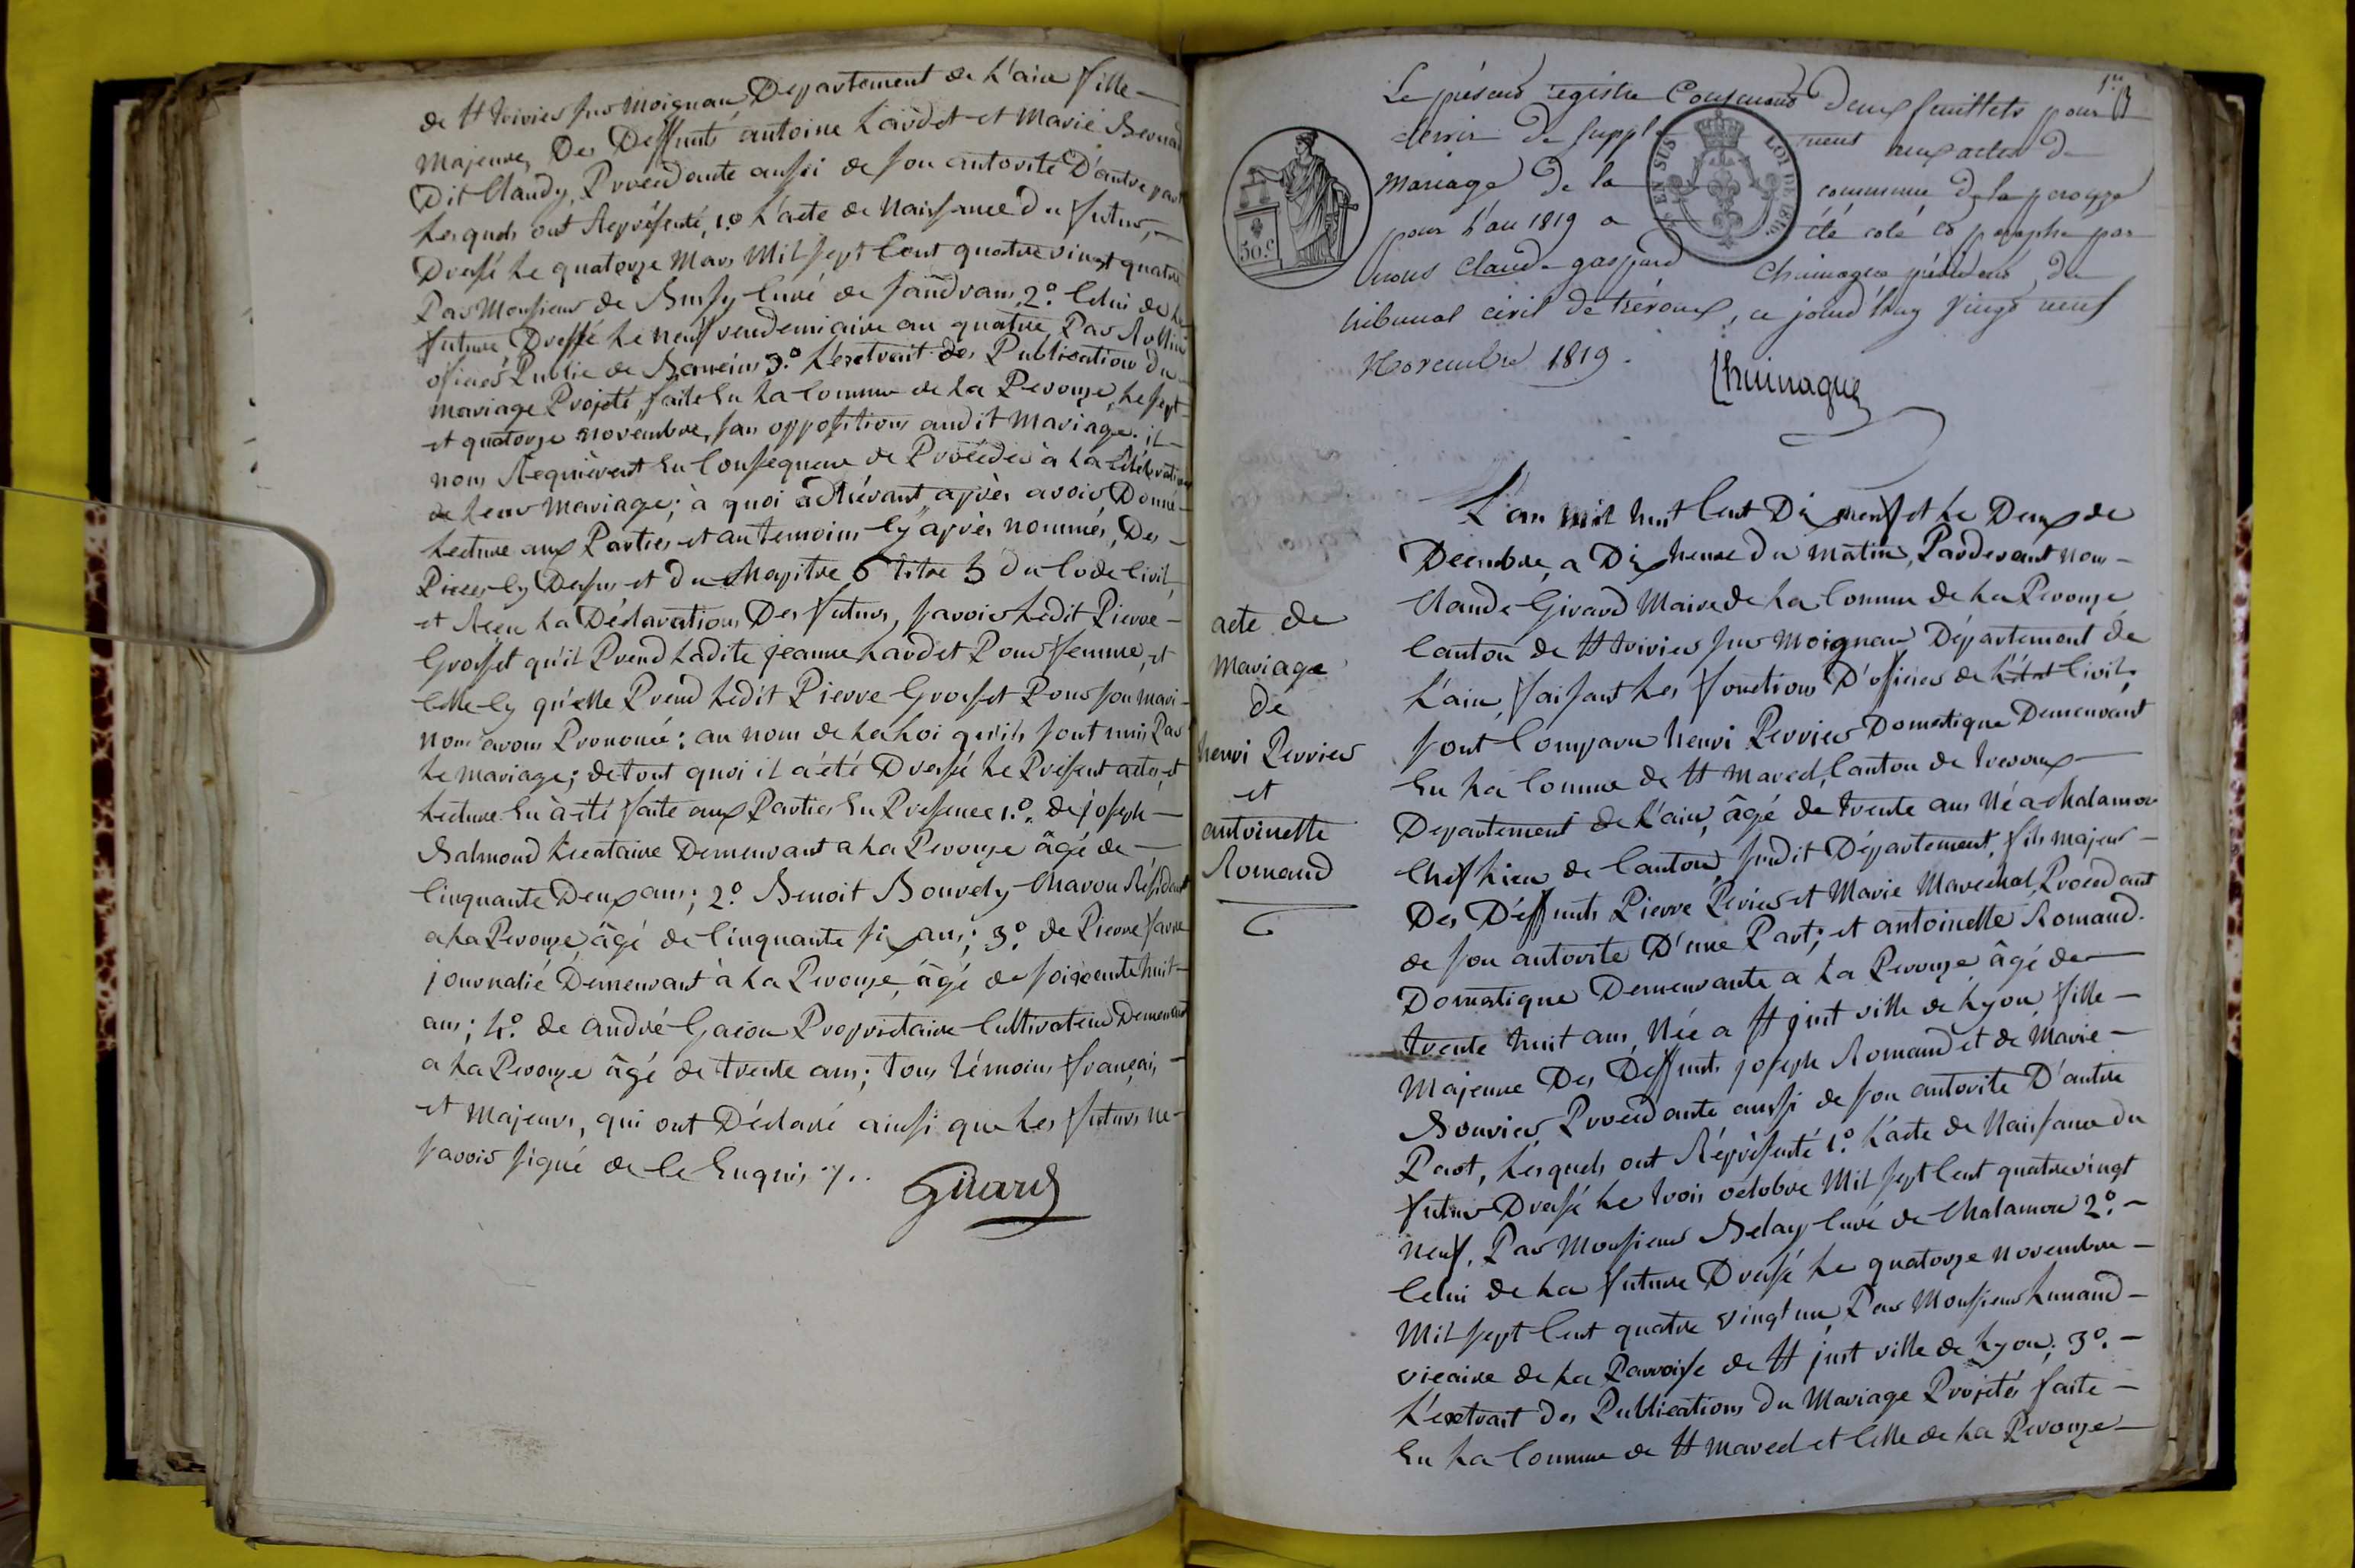 de St trivier sur moignan, Departement de L'ain fille
Majeure, Des Deffunts antoine Lardet et Marie Bernard
Dit Claudy, Procedante aussi de son autorité D'autre part
Lesquels ont Représenté, 1.º L'acte de Naissance du futur,
Dressé Le quatorze Mars Mil sept Cent quatre vingt quatre
Par Monsieur de Bussy Curé de Sandrans, 2.º Celui de La
future Dressé Le neuf vendemiaire an quatre, Par Rollin
oficier Public de Baneins 3.º L'extrait des Publications du
mariage Projeté, faite En La Commune de La Perouze, Le sept
et quatorze novembre, san oppositions audit Mariage. il
nous Requièrent En Conséquence de Procéder à La Célébration
de Leur Mariage; à quoi adhérant, après avoir Donné
Lecture aux Parties et au temoins Cy après nommés, Des
Pieces Cy Dessus, et du Chapitre 6 titre 5 du Code Civil,
et Reçu La Déclarations Des futurs, savoir Ledit Pierre
Grosset qu'il Prend Ladite jeanne Lardet Pour femme, et
Celle Cy qu'elle Prend Ledit Pierre Grosset Pour son mari
nous avons Prononcé: au nom de La Loi qu'ils sont unis Par
Le Mariage; de tout quoi il a été Dressé Le Présent acte, et
Lecture En à été faite aux Parties En Pressence 1.º de joseph
Salmond Demeurant a La Perouze âgé de
Cinquante Deux ans; 2.º Benoit Bouvéry Charon Résidant
a La Perouze, âgé de Cinquante six ans; 3.º de Pierre favre
journalié Demeurant à La Perouze, âgé de soixcente huit
ans; 4.º de andré Gacon Proprietaire Cultivateur Demeurant
a La Perouze âgé de trente ans; tous témoins français
et Majeurs, qui ont Déclaré ainsi que Les futurs ne
savoir signé de Ce Enquis ./.
Girard
Le présent registre Contenant Deux feuillets pour
servir De suppl ment aux actes De
Mariage De la commune de la perouze
pour l'an 1819 a été coté et paraphé par
nous Claude gaspard Chuinague président Du
tribunal civil de trévoux, ce jourd'huy vingt neuf
Novembre 1819.
Chuinague
50.c
EN SUS
LOI DE 1816
acte de
Mariage
de
henri Perrier
et
antoinette
Romand
L'an mil huit Cent Dix neuf et Le Deux de
Decembre, a Dix heure du matin, Pardevant nous
Claude Girard Maire de La Commune de La Perouze
Canton de St trivier sur Moignan Département de
L'ain, faisant Les fonctions D'oficier de L'état Civil,
sont Comparu henri Perrier Domestique Demeurant
En La Commune de St Marcel, Canton de trevoux
Departement de L'ain, âgé de trente ans Né a Chalamon
Chef Lieu de Canton, sudit Département, fils majeur
Des Deffunts Pierre Périer et Marie Marechal, Procedant
de son autorite D'une Part; et antoinette Romand.
Domestique Demeurante a La Perouze âgé de
trente huit ans, Née a St just ville de Lyon, fille
Majeure Des Deffunts joseph Romand et de Marie
Bouvier, Procédante aussi de son autorite D'autre
Part, Lesquels ont Réprésenté 1.º L'acte de Naissance du
futur Dressé Le trois octobre Mil sept Cent quatre vingt
neuf, Par Monsieur Belay Curé de Chalamon 2.º
Celui de La future Dressé Le quatorze novembre
Mil sept Cent quatre vingt un, Par Monsieur Lunand
vicaire de La Parroise de St just ville de Lyon; 3.º
L'extrait des Publications du Mariage Projetés faite
En La Commune de St Marcel et Celle de La Perouze